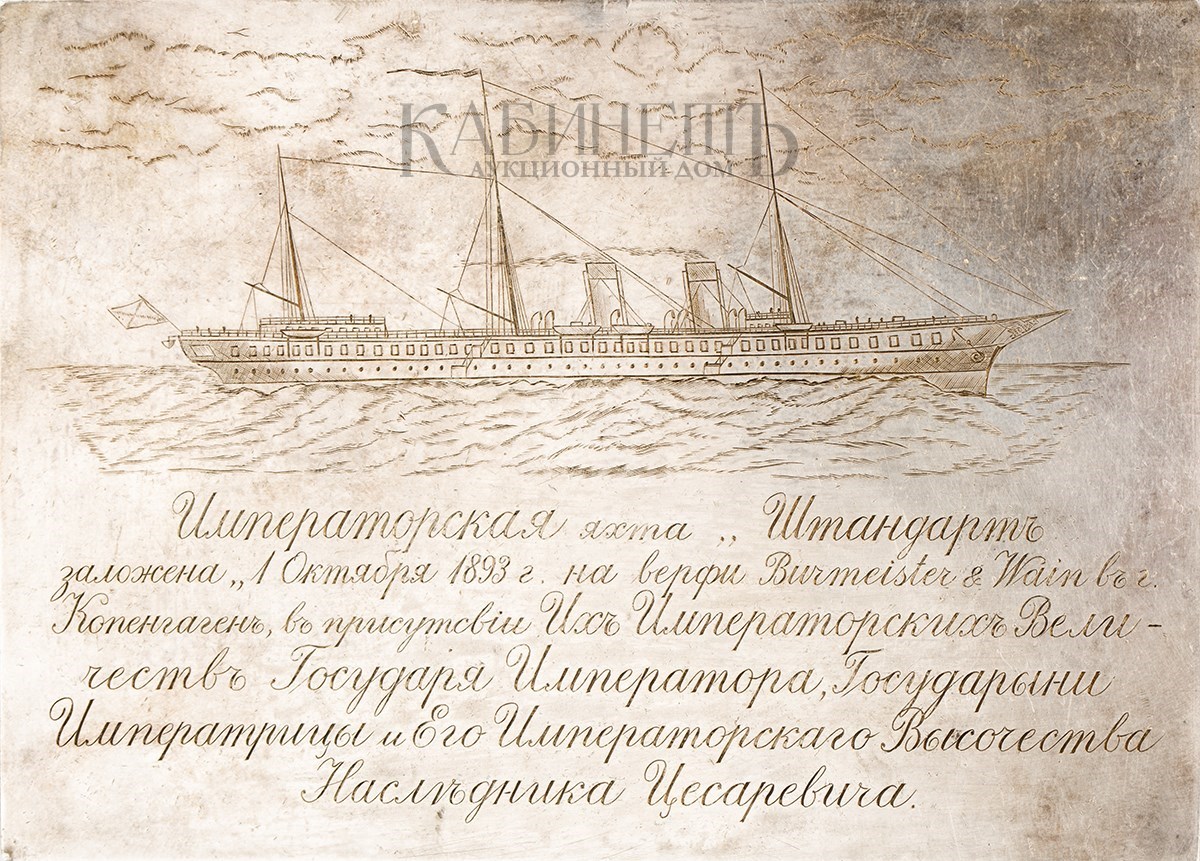 КАБИНЕТЪ
АУКЦИОННЫЙ ДОМ
Императорская яхта „ Штандартъ
заложена „1 Октября 1893 г. на верфи Burmeister & Wain въ г.
Копенгагенъ, въ присутсвіи Ихъ Императорскихъ Вели-
чествъ Государя Императора, Государыни
Императрицы и Его Императорскаго Высочества
Наслѣдника Цесаревича.